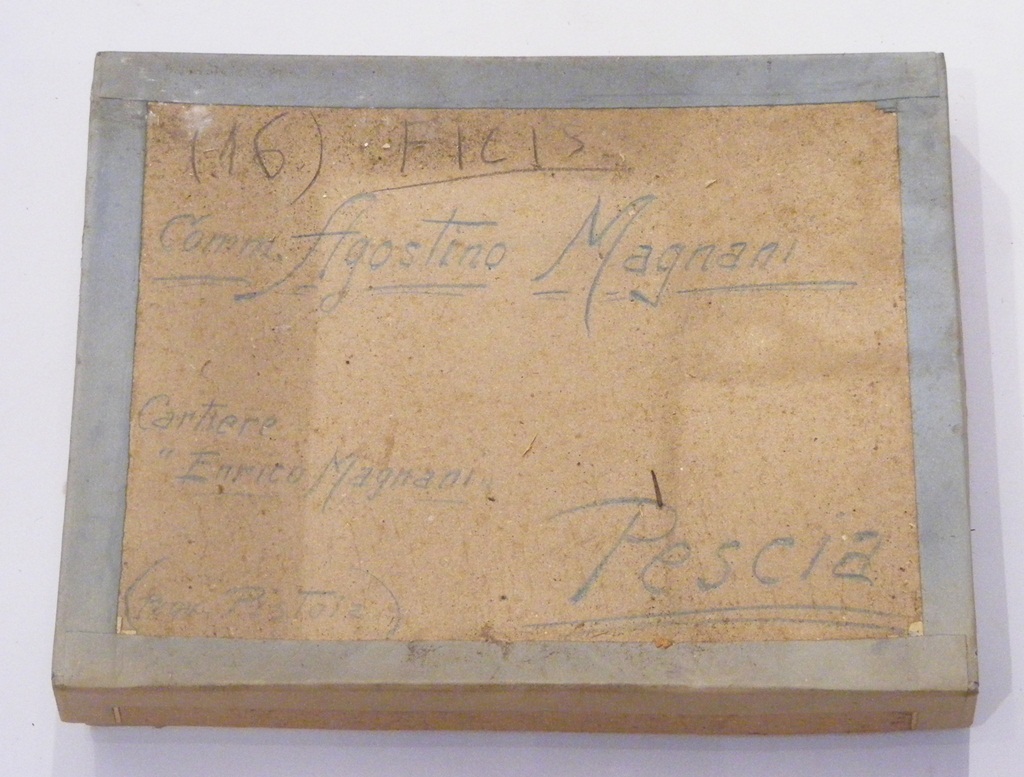 (16) FICIS
Comm. Agostino Magnani
Cartiere
"Enrico Magnani
Pescia
(Prov. Pistoia)